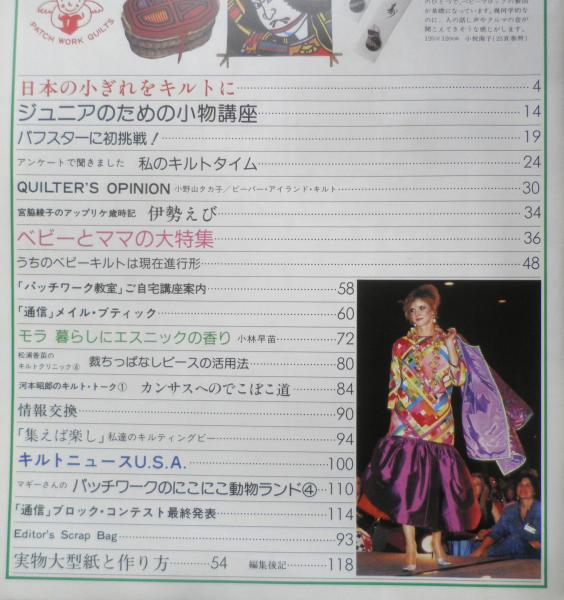 PATCH WORK QUILTS
のひとつで、ベビーブロックの動向
が基礎になっています。幾何学的な
のに、人の話し声やクルマの音が
聞こえてきそうな感じがします。
日本の小ぎれをキルトに 4
ジュニアのための小物講座 14
パフスターに初挑戦! 19
アンケートで聞きました 私のキルトタイム 24
QUILTER'S OPINION 小野山タカ子/ビーバー・アイランド・キルト 30
宮脇綾子のアップリケ歳時記 伊勢えび 34
ベビーとママの大特集 36
うちのベビーキルトは現在進行形 48
「パッチワーク教室」ご自宅講座案内 58
「通信」メイル・ブティック 60
モラ 暮らしにエスニックの香り 小林早苗 72
松浦香苗の
キルトクリニック④ 裁ちっぱなしピースの活用法 80
河本昭郎のキルト・トーク① カンサスへのでこぼこ道 84
情報交換 90
「集えば楽し」私達のキルティングビー 94
キルトニュースU.S.A. 100
マギーさんの パッチワークのにこにこ動物ランド④ 110
「通信」ブロック・コンテスト最終発表 114
Editor's Scrap Bag 93
実物大型紙と作り方 54 編集後記 118